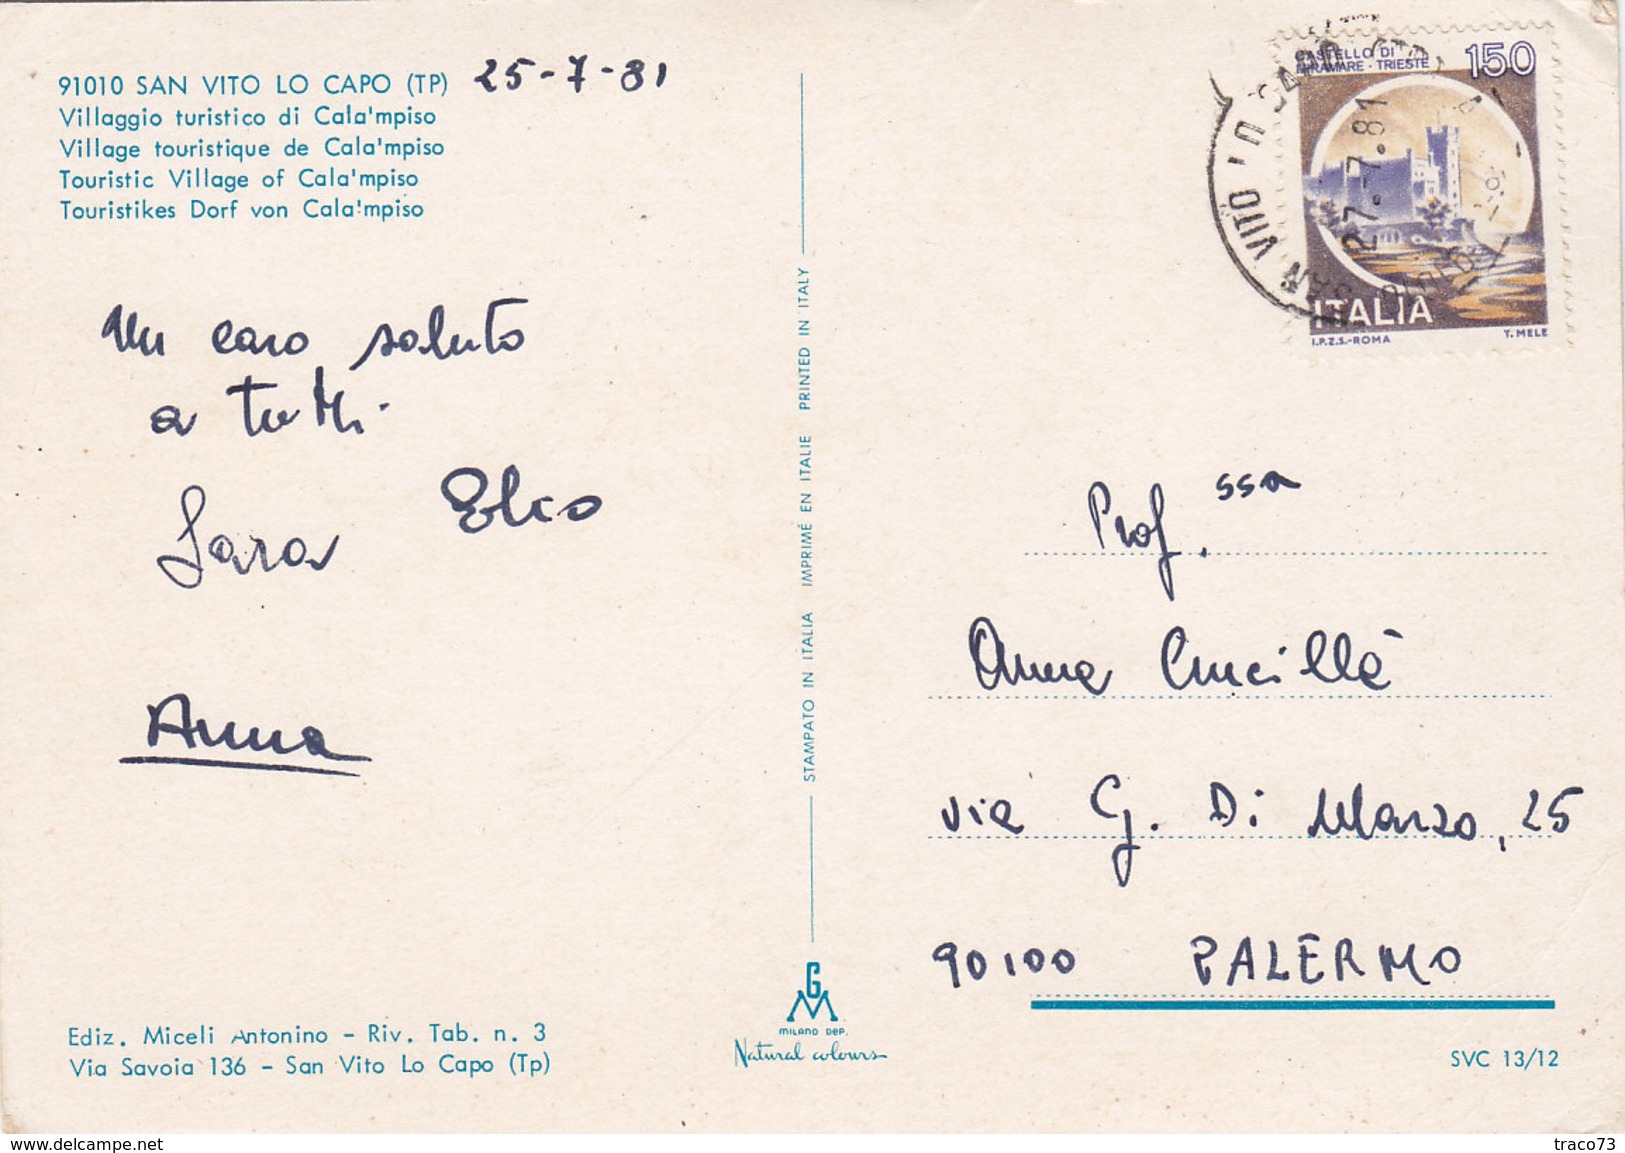 91010 SAN VITO LO CAPO (TP) 25-7-81
Villaggio turistico di Cala'mpiso
Village touristique de Cala'mpiso
Touristic Village of Cala'mpiso
Touristikes Dorf von Cala'mpiso
Un caro saluto
a tutti.
Sara Elio
Anna
Ediz. Miceli Antonino - Riv. Tab. n. 3
Via Savoia 136 - San Vito Lo Capo (Tp)
STAMPATO IN ITALIA IMPRIMÉ EN ITALIE PRINTED IN ITALY
GM
MILANO DEP.
Natural colours
CASTELLO DI
MIRAMARE - TRIESTE
150
ITALIA
I.P.Z.S.-ROMA T. MELE
SAN VITO LO CAPO
27.-7.81
Prof.ssa
Anna Cucillà
via G. Di Marzo, 25
90100 PALERMO
SVC 13/12
delcampe.net
traco73